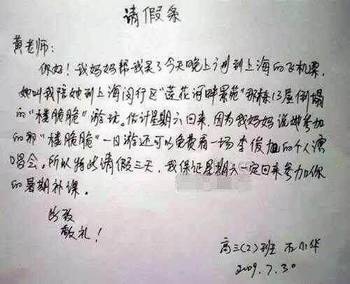 请假条
黄老师：
你好！我妈妈帮我买了今天晚上广州到上海的飞机票，
她叫我陪她到上海闵行区“莲花河畔景苑”那栋13层倒塌
的“楼脆脆”游玩。估计星期六回来，因为我妈妈说她参加
的那“楼脆脆”一日游还可以免费看一场李俊灿的个人演
唱会。所以特此请假三天，我保证星期六一定回来参加你
的暑期补课。
此致
敬礼！
高三（2）班 石小华
2009.7.30